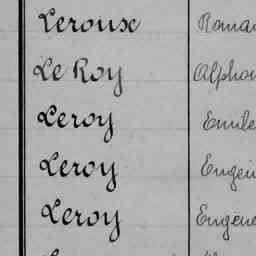 Leroux Roma
Le Roy Alpho
Leroy Emile
Leroy Eugèn
Leroy Eugène